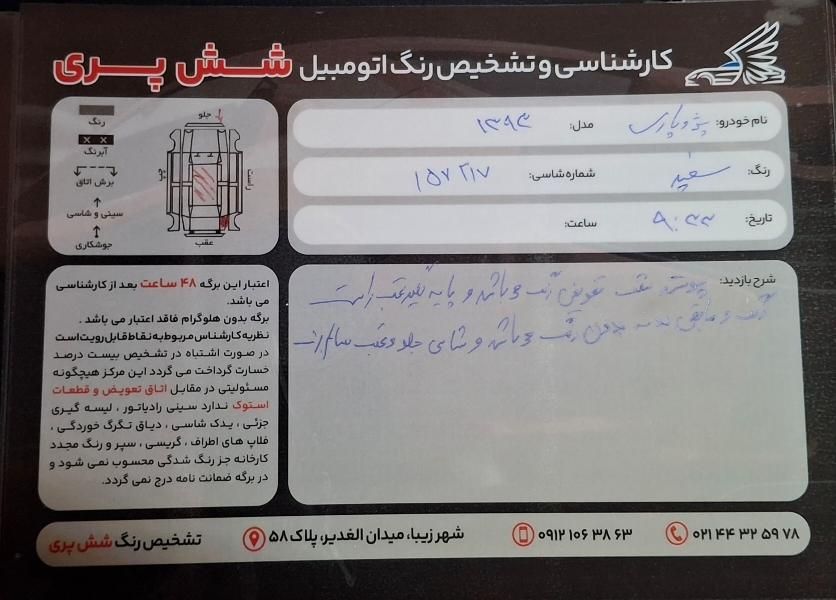 کارشناسی و تشخیص رنگ اتومبیل شش پری
نام خودرو: پژو پارس مدل: ۱۳۹۳
رنگ: سفید شماره شاسی: ۱۵۷۲۱۷
تاریخ: ساعت: ۹:۳۳
رنگ
آبرنگ
برش اتاق
سینی و شاسی
جوشکاری
جلو
راست
چپ
عقب
شرح بازدید:
تعویض رنگ می باشد و پایه عقب راست
رنگ و مابقی بدنه بدون رنگ می باشد و شاسی جلو و عقب سالم است
اعتبار این برگه ۴۸ ساعت بعد از کارشناسی
می باشد.
برگه بدون هلوگرام فاقد اعتبار می باشد .
نظریه کارشناس مربوط به نقاط قابل رویت است
در صورت اشتباه در تشخیص بیست درصد
خسارت گرداخت می گردد این مرکز هیچگونه
مسئولیتی در مقابل اتاق تعویض و قطعات
استوک ندارد سینی رادیاتور ، لیسه گیری
جزئی ، یدک شاسی ، دیاق تگرگ خوردگی ،
فلاپ های اطراف ، گریسی ، سپر و رنگ مجدد
کارخانه جز رنگ شدگی محسوب نمی شود و
در برگه ضمانت نامه درج نمی گردد.
۰۲۱ ۴۴ ۳۲ ۵۹ ۷۸
۰۹۱۲ ۱۰۶ ۳۸ ۶۳
شهر زیبا، میدان الغدیر، پلاک ۵۸
تشخیص رنگ شش پری